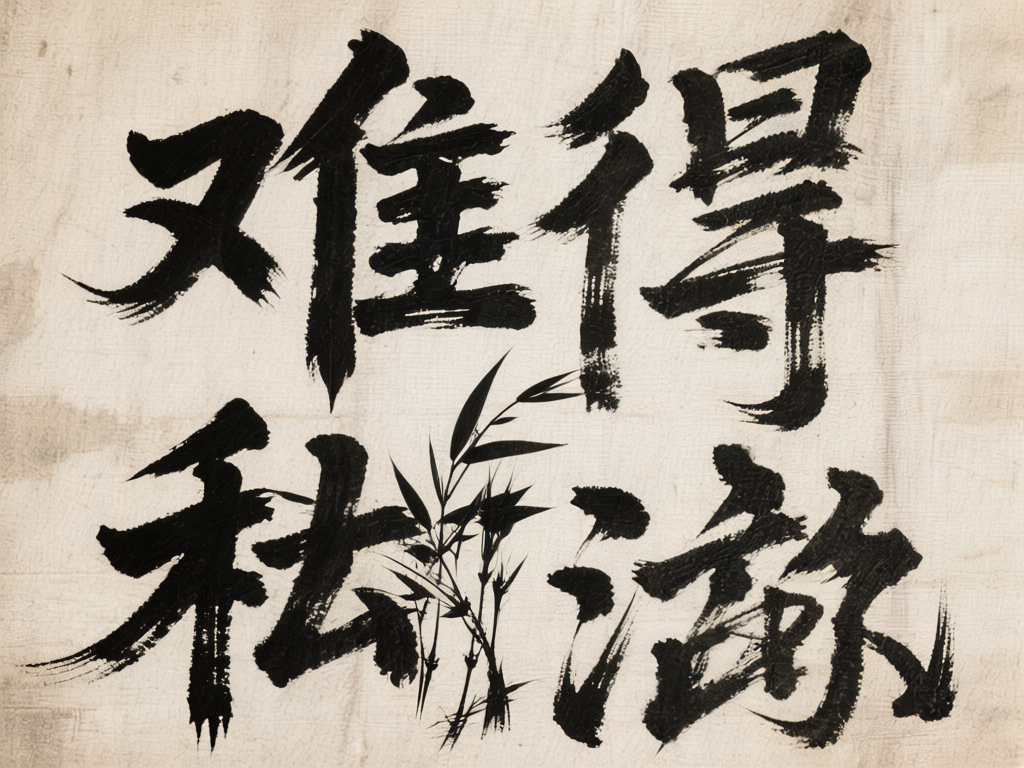 难得
私